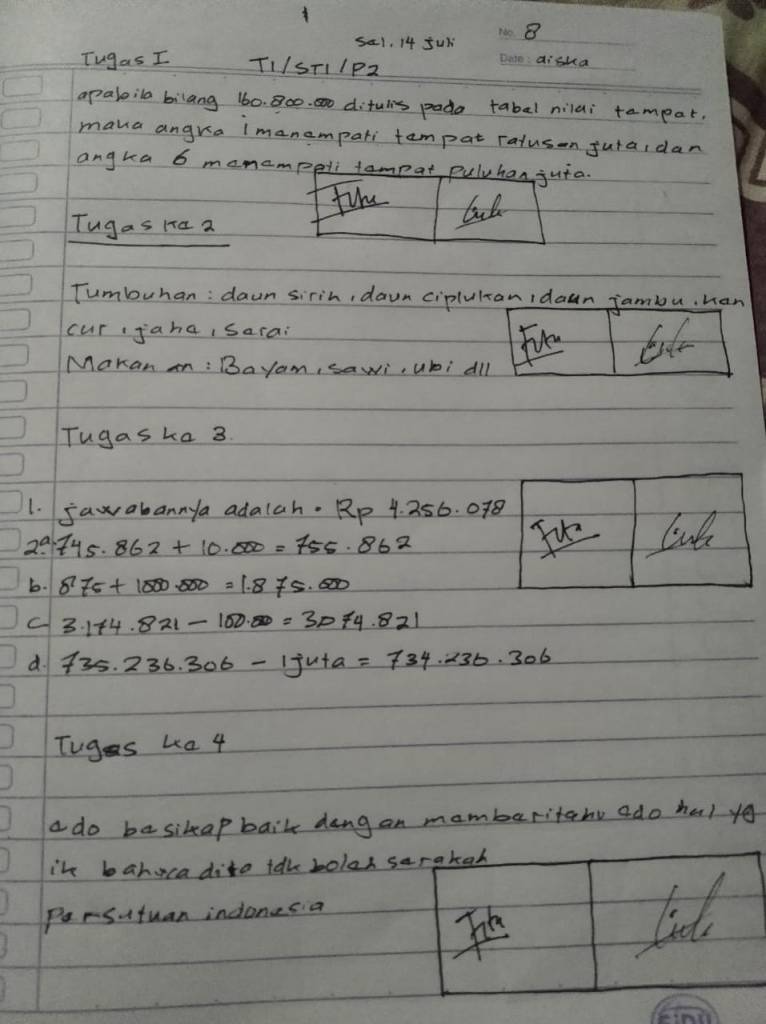 1
Sel. 14 Juli
No. 8
Tugas I
T1/ST1/P2
Date: diska
apabila bilang 160.800.000 ditulis pada tabel nilai tempat.
maka angka 1 manempati tempat ratusan juta, dan
angka 6 manempati tempat puluhan juta.
Tugas ke 2
Tumbuhan : daun sirih, daun ciplukan, daun jambu, ken
cur, jahe, sarai
Makanan : Bayam, sawi, ubi dll
Tugas ke 3.
1. jawabannya adalah. Rp 4.256.078
2a. 745.862 + 10.000 = 755.862
b. 875 + 1000.000 = 1.875.000
c 3.174.821 - 100.00 = 3.074.821
d. 735.236.306 - 1 juta = 734.236.306
Tugas ke 4
edo basikap baik dengan mambaritahu edo hal
ik bahwa tdk boleh serakah
Persatuan indonesia